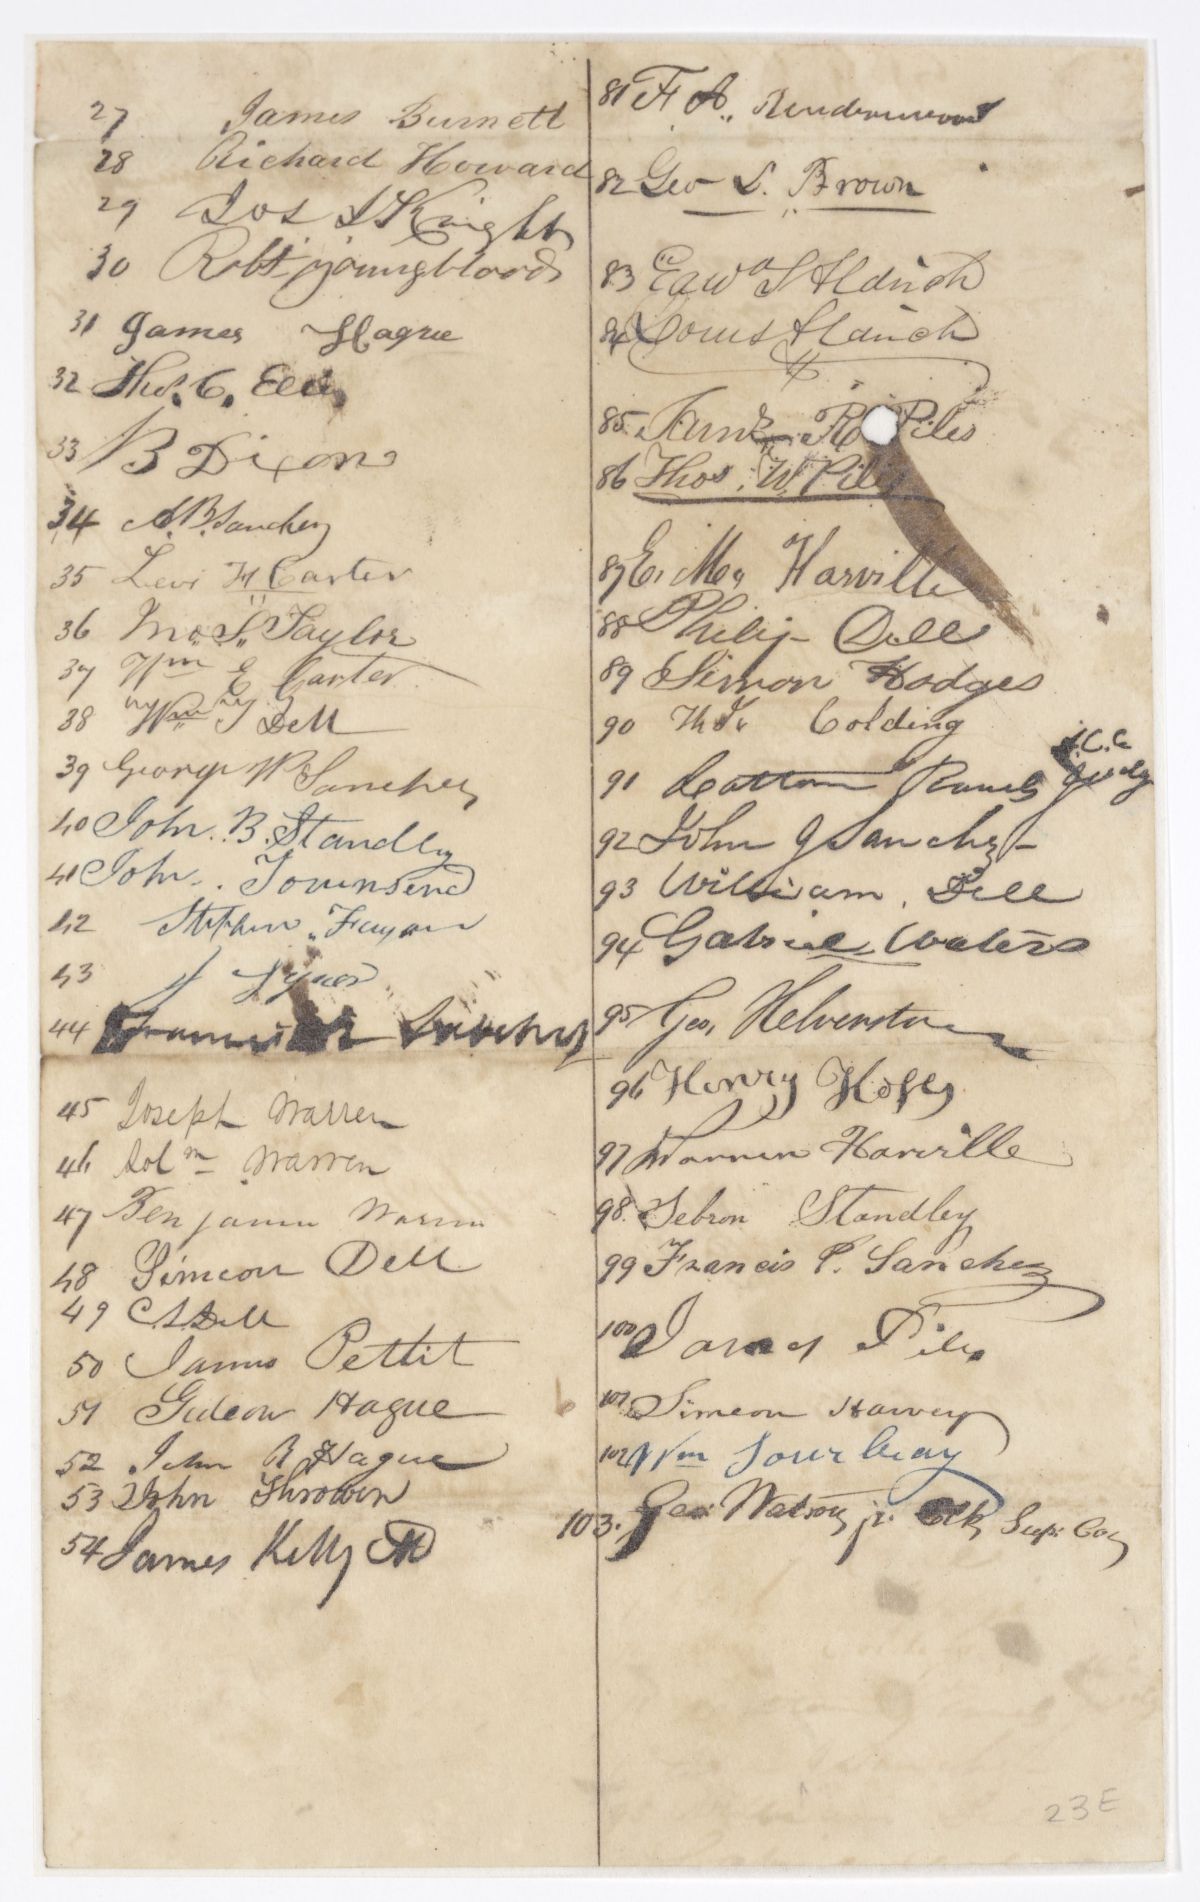 27 James Burnett
28 Richard Howard
29 Jos S Knight
30 Robt youngblood
31 James Hague
32 Thos. C. Ellis
33 B Dixon
34 A. B. Sanchez
35 Levi H Carter
36 Jno. S. Taylor
37 Wm E Carter
38 Wm Dell
39 George W Sanchez
40 John. B. Standley
41 John. Townsend
42 Stephen Fagan
43 J
44 Sanchez
45 Joseph Warren
46 Solm Warren
47 Benjamin Warren
48 Simeon Dell
49 Dell
50 James Pettit
51 Gideon Hague
52 John R Hague
53 John Throwen
54 James Kelly
81 F A.
82 Geo L. Brown
83 Edwd S Aldrich
84 Louis Aldrich
85. Frank R Piles
86 Thos. W. Piles
87 E. M. Harville
88 Philip Dell
89 Simon Hodges
90 Colding
91 Cotton Rawls Judge J.C.C.
92 John J Sanchez
93 William Dell
94 Gabriel Waters
95 Geo, Helvenston
96 Henry
97 Warren Harville
98. Sebron Standley
99 Francis P. Sanchez
100 James Piles
101 Simeon Harvey
102 Wm
103. Geo: Watson jr. Clk Sup: Co
23E